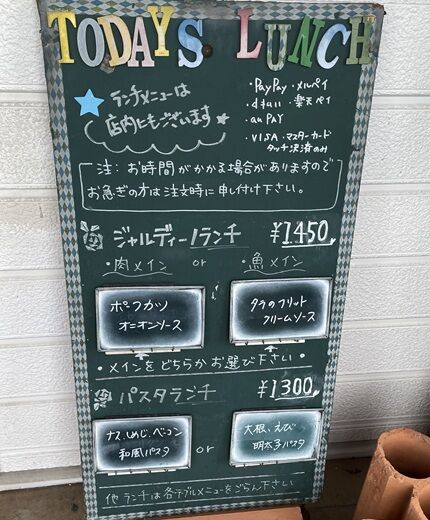 TODAYS LUNCH
ランチメニューは
店内にもございます★
・PayPay・メルペイ
・d払い・楽天ペイ
・au PAY
・VISA・マスターカード
タッチ決済のみ
注：お時間がかかる場合がありますので
お急ぎの方は注文時に申し付け下さい。
ジャルディーノランチ ¥1450
・肉メイン or ・魚メイン
ポークカツ
オニオンソース
タラのフリット
クリームソース
・メインをどちらかお選び下さい・
パスタランチ ¥1300
ナス、しめじ、ベーコン
和風パスタ
or
大根、えび
明太子パスタ
他ランチは各テーブルメニューをごらん下さい